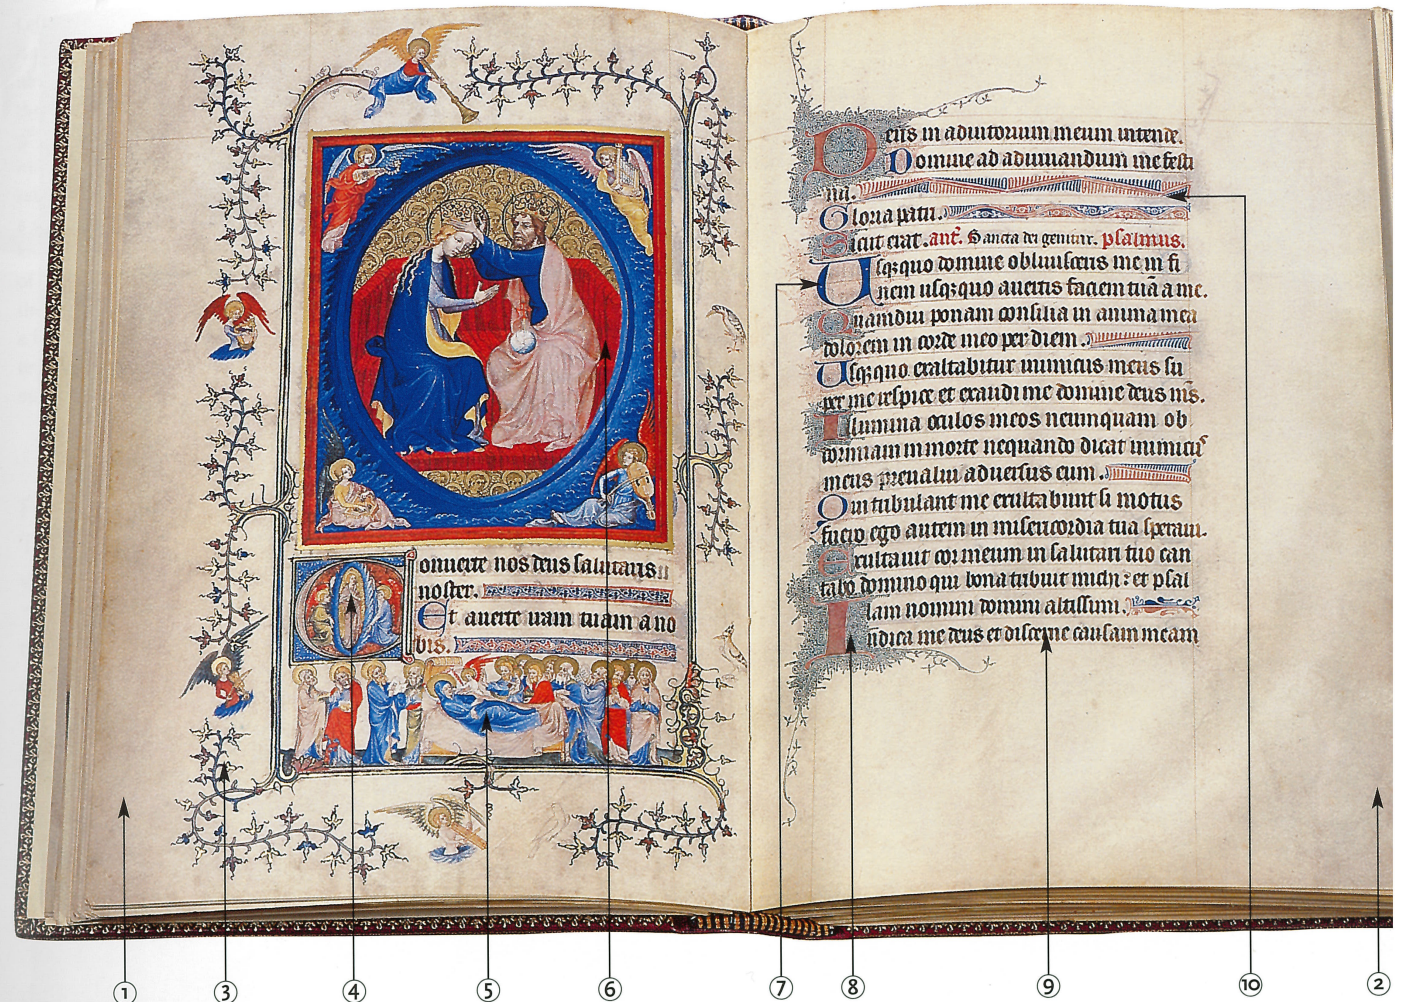 Conuerte nos deus salutaris
noster.
Et auerte iram tuam a no
bis.
Deus in adiutorium meum intende.
Domine ad adiuuandum me festi
na.
Gloria patri.
Sicut erat. ant̃. Sancta dei genitrix. psalmus.
Usqꝫquo domine obliuisceris me in fi
nem usqꝫquo auertis faciem tuã a me.
Quamdiu ponam consilia in anima mea
dolorem in corde meo per diem.
Usqꝫquo exaltabitur inimicus meus su
per me respice et exaudi me domine deus ms̃.
Illumina oculos meos neumquam ob
dormiam in morte nequando dicat inimicus
meus preualui aduersus eum.
Qui tribulant me exultabunt si motus
fuero ego autem in misericordia tua speraui.
Exultauit cor meum in salutari tuo can
tabo domino qui bona tribuit michi: et psal
lam nomini domini altissimi.
Iudica me deus et discerne causam meam
1 3 4 5 6 7 8 9 10 2